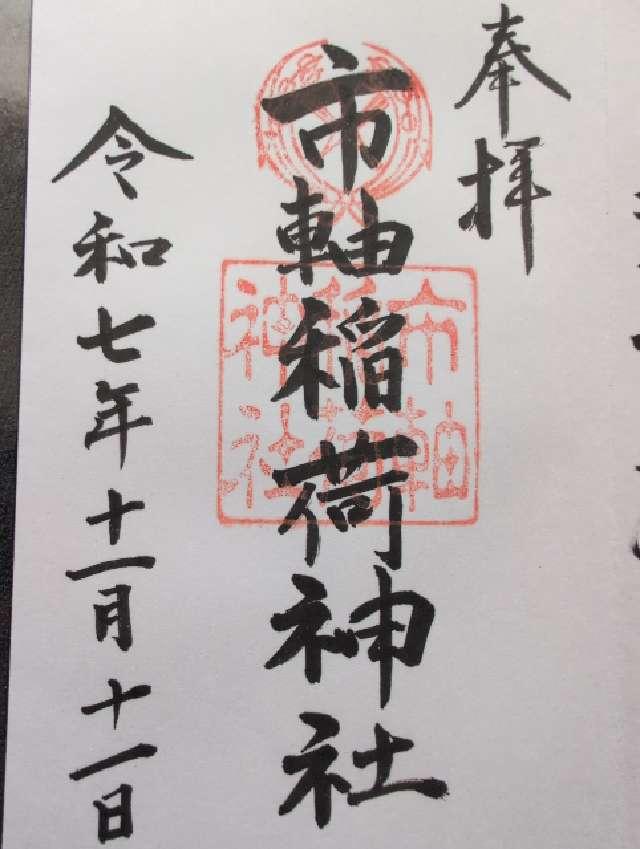 奉拝
市軸稲荷神社
令和七年十一月十一日
市軸
稲荷
神社